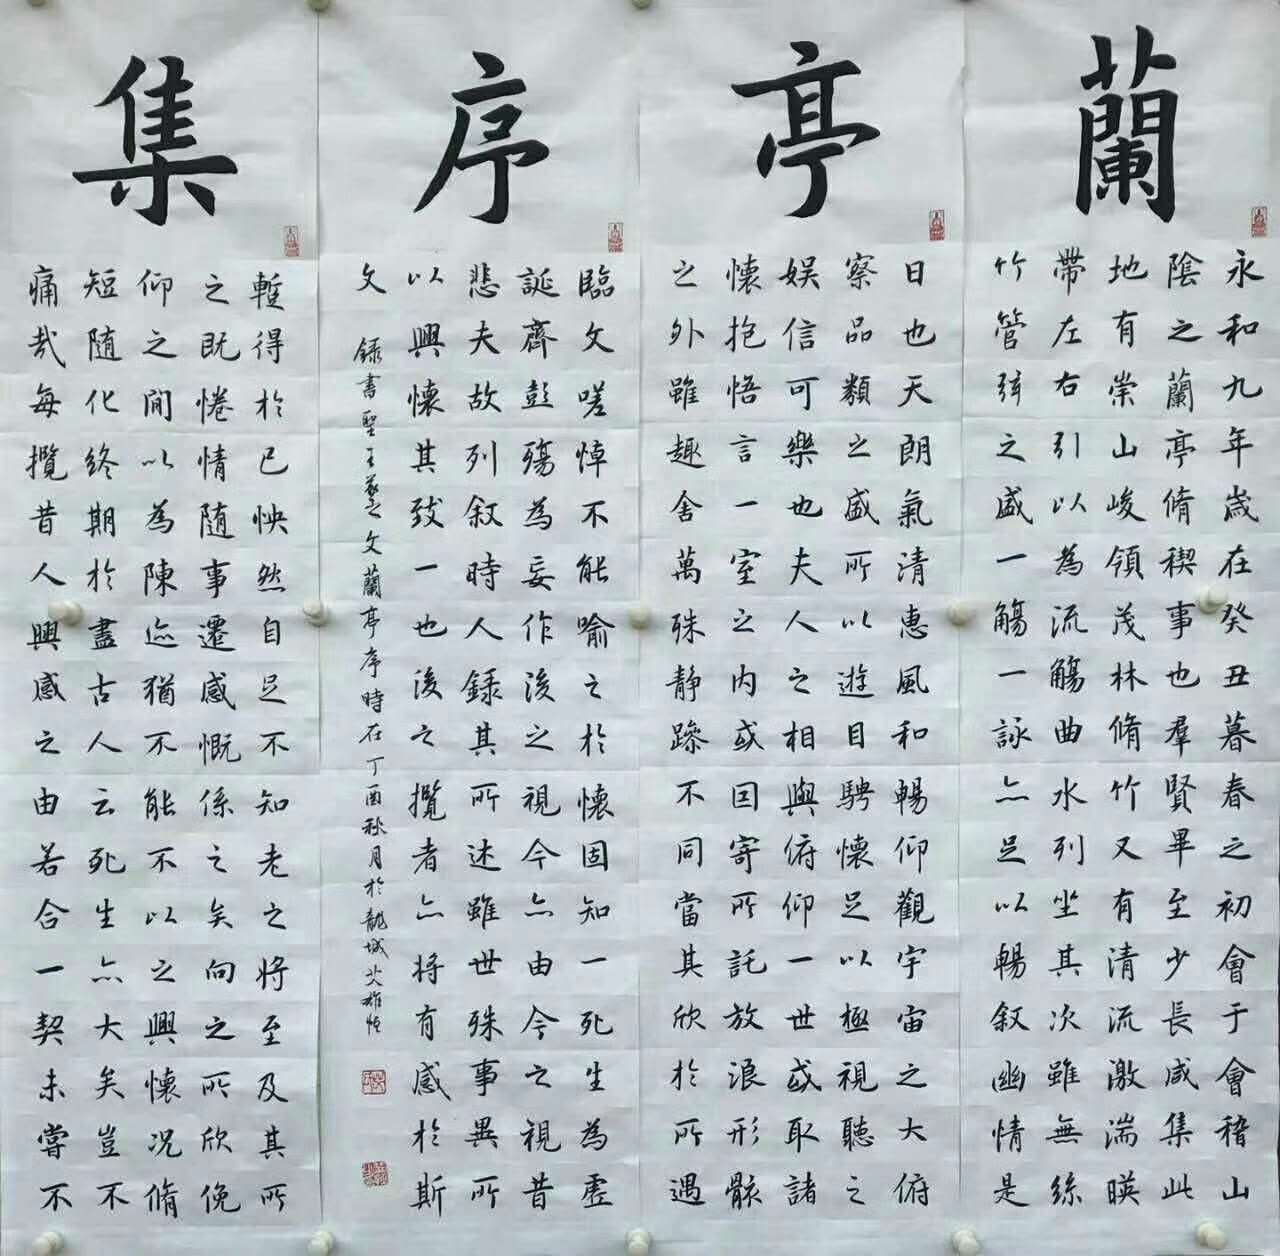 蘭亭序集
永和九年歲在癸丑暮春之初會于會稽山
陰之蘭亭脩稧事也羣賢畢至少長咸集此
地有崇山峻領茂林脩竹又有清流激湍暎
帶左右引以為流觴曲水列坐其次雖無絲
竹管弦之盛一觴一詠亦足以暢敘幽情是
日也天朗氣清惠風和暢仰觀宇宙之大俯
察品類之盛所以遊目騁懷足以極視聽之
娛信可樂也夫人之相與俯仰一世或取諸
懷抱悟言一室之內或因寄所託放浪形骸
之外雖趣舍萬殊靜躁不同當其欣於所遇
臨文嗟悼不能喻之於懷固知一死生為虛
誕齊彭殤為妄作後之視今亦由今之視昔
悲夫故列敘時人錄其所述雖世殊事異所
以興懷其致一也後之攬者亦將有感於斯
文
錄書聖王羲之文蘭亭序時在丁酉秋月於龍城
暫得於己怏然自足不知老之將至及其所
之既惓情隨事遷感慨係之矣向之所欣俛
仰之間以為陳迹猶不能不以之興懷況脩
短隨化終期於盡古人云死生亦大矣豈不
痛哉每攬昔人興感之由若合一契未嘗不